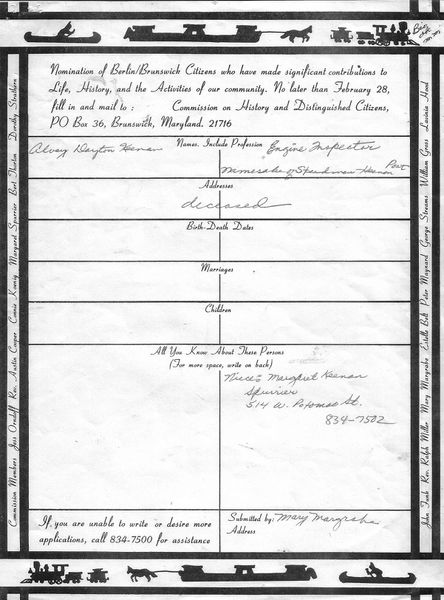 Nomination of Berlin/Brunswick Citizens who have made significant contributions to
Life, History, and the Activities of our community. No later than February 28,
fill in and mail to : Commission on History and Distinguished Citizens,
PO Box 36, Brunswick, Maryland. 21716
Names, Include Profession
Alvey Dayton Keenan Engine Inspector
Namesake of Steadman Keenan Post
Addresses
deceased
Birth-Death Dates
Marriages
Children
All You Know About These Persons
(For more space, write on back)
Niece Margaret Keenan
Spurrier
514 W. Potomac St.
834-7502
If, you are unable to write or desire more
applications, call 834-7500 for assistance
Submitted by: Mary Margrabe
Address
Commission Members: Jess Orndoff Rev. Austin Cooper Connie Koenig Margaret Spurrier Bert Thorton Dorothy Strathern
John Funk Rev. Ralph Miller Mary Margrabe Estelle Bolt Peter Maynard George Streams William Gross Lavinia Hood